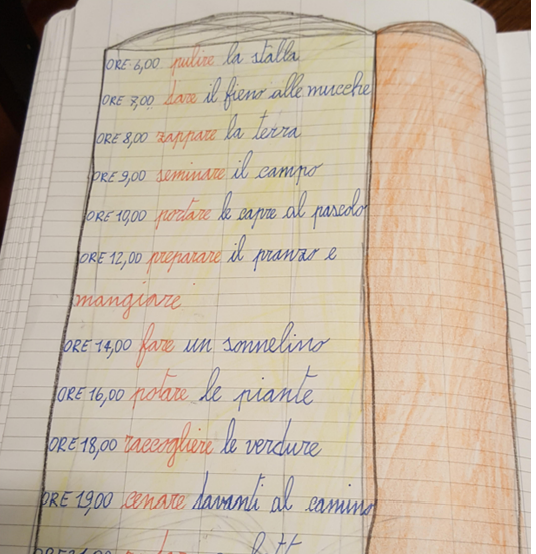 ORE 6,00 pulire la stalla
ORE 7,00 dare il fieno alle mucche
ORE 8,00 zappare la terra
ORE 9,00 seminare il campo
ORE 10,00 portare le capre al pascolo
ORE 12,00 preparare il pranzo e
mangiare
ORE 14,00 fare un sonnelino
ORE 16,00 potare le piante
ORE 18,00 raccogliere le verdure
ORE 19,00 cenare davanti al camino